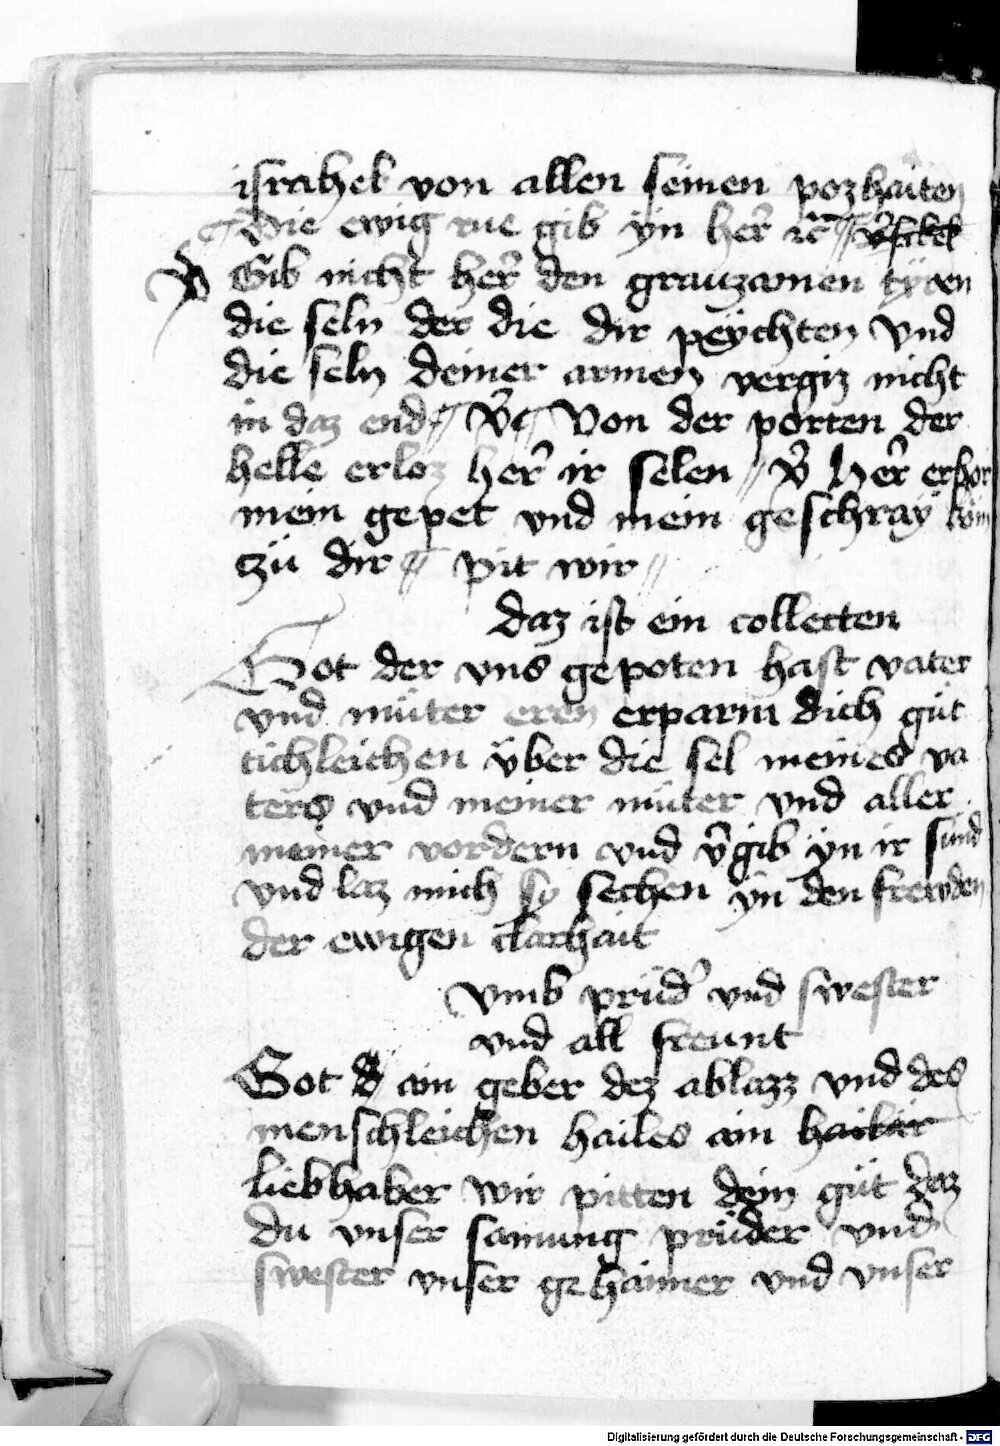 israhel von allen seinen pozhaiten
Die ewig rue gib yn her̄ ꝛc̄
Gib nicht her̄ den grauzamen tyren
die seln der die dir peychten vnd
die seln deiner armen vergiz nicht
in daz end V̄ Von der porten der
helle erloz her̄ ir selen V̄ Her̄ erhor
mein gepet vnd mein geschray kom
tzü dir pit wir
daz ist ein collecten
Got der vns gepoten hast vater
vnd müter eren erparm dich güt
tichleichen v̈ber die sel meines va
ters vnd meiner müter vnd aller
meiner vordern vnd v̄gib yn ir sünd
vnd laz mich so sechen yn den frewden
der ewigen clarhait
vmb prüd̄ vnd swester
vnd all freunt
Got d ain geber dez ablazz vnd des
menschleichen hailes ain
liebhaber wir pitten dein güt daz
du vnser samung prüder vnd
swester vnser gehaimer vnd vnser
Digitalisierung gefördert durch die Deutsche Forschungsgemeinschaft - DFG